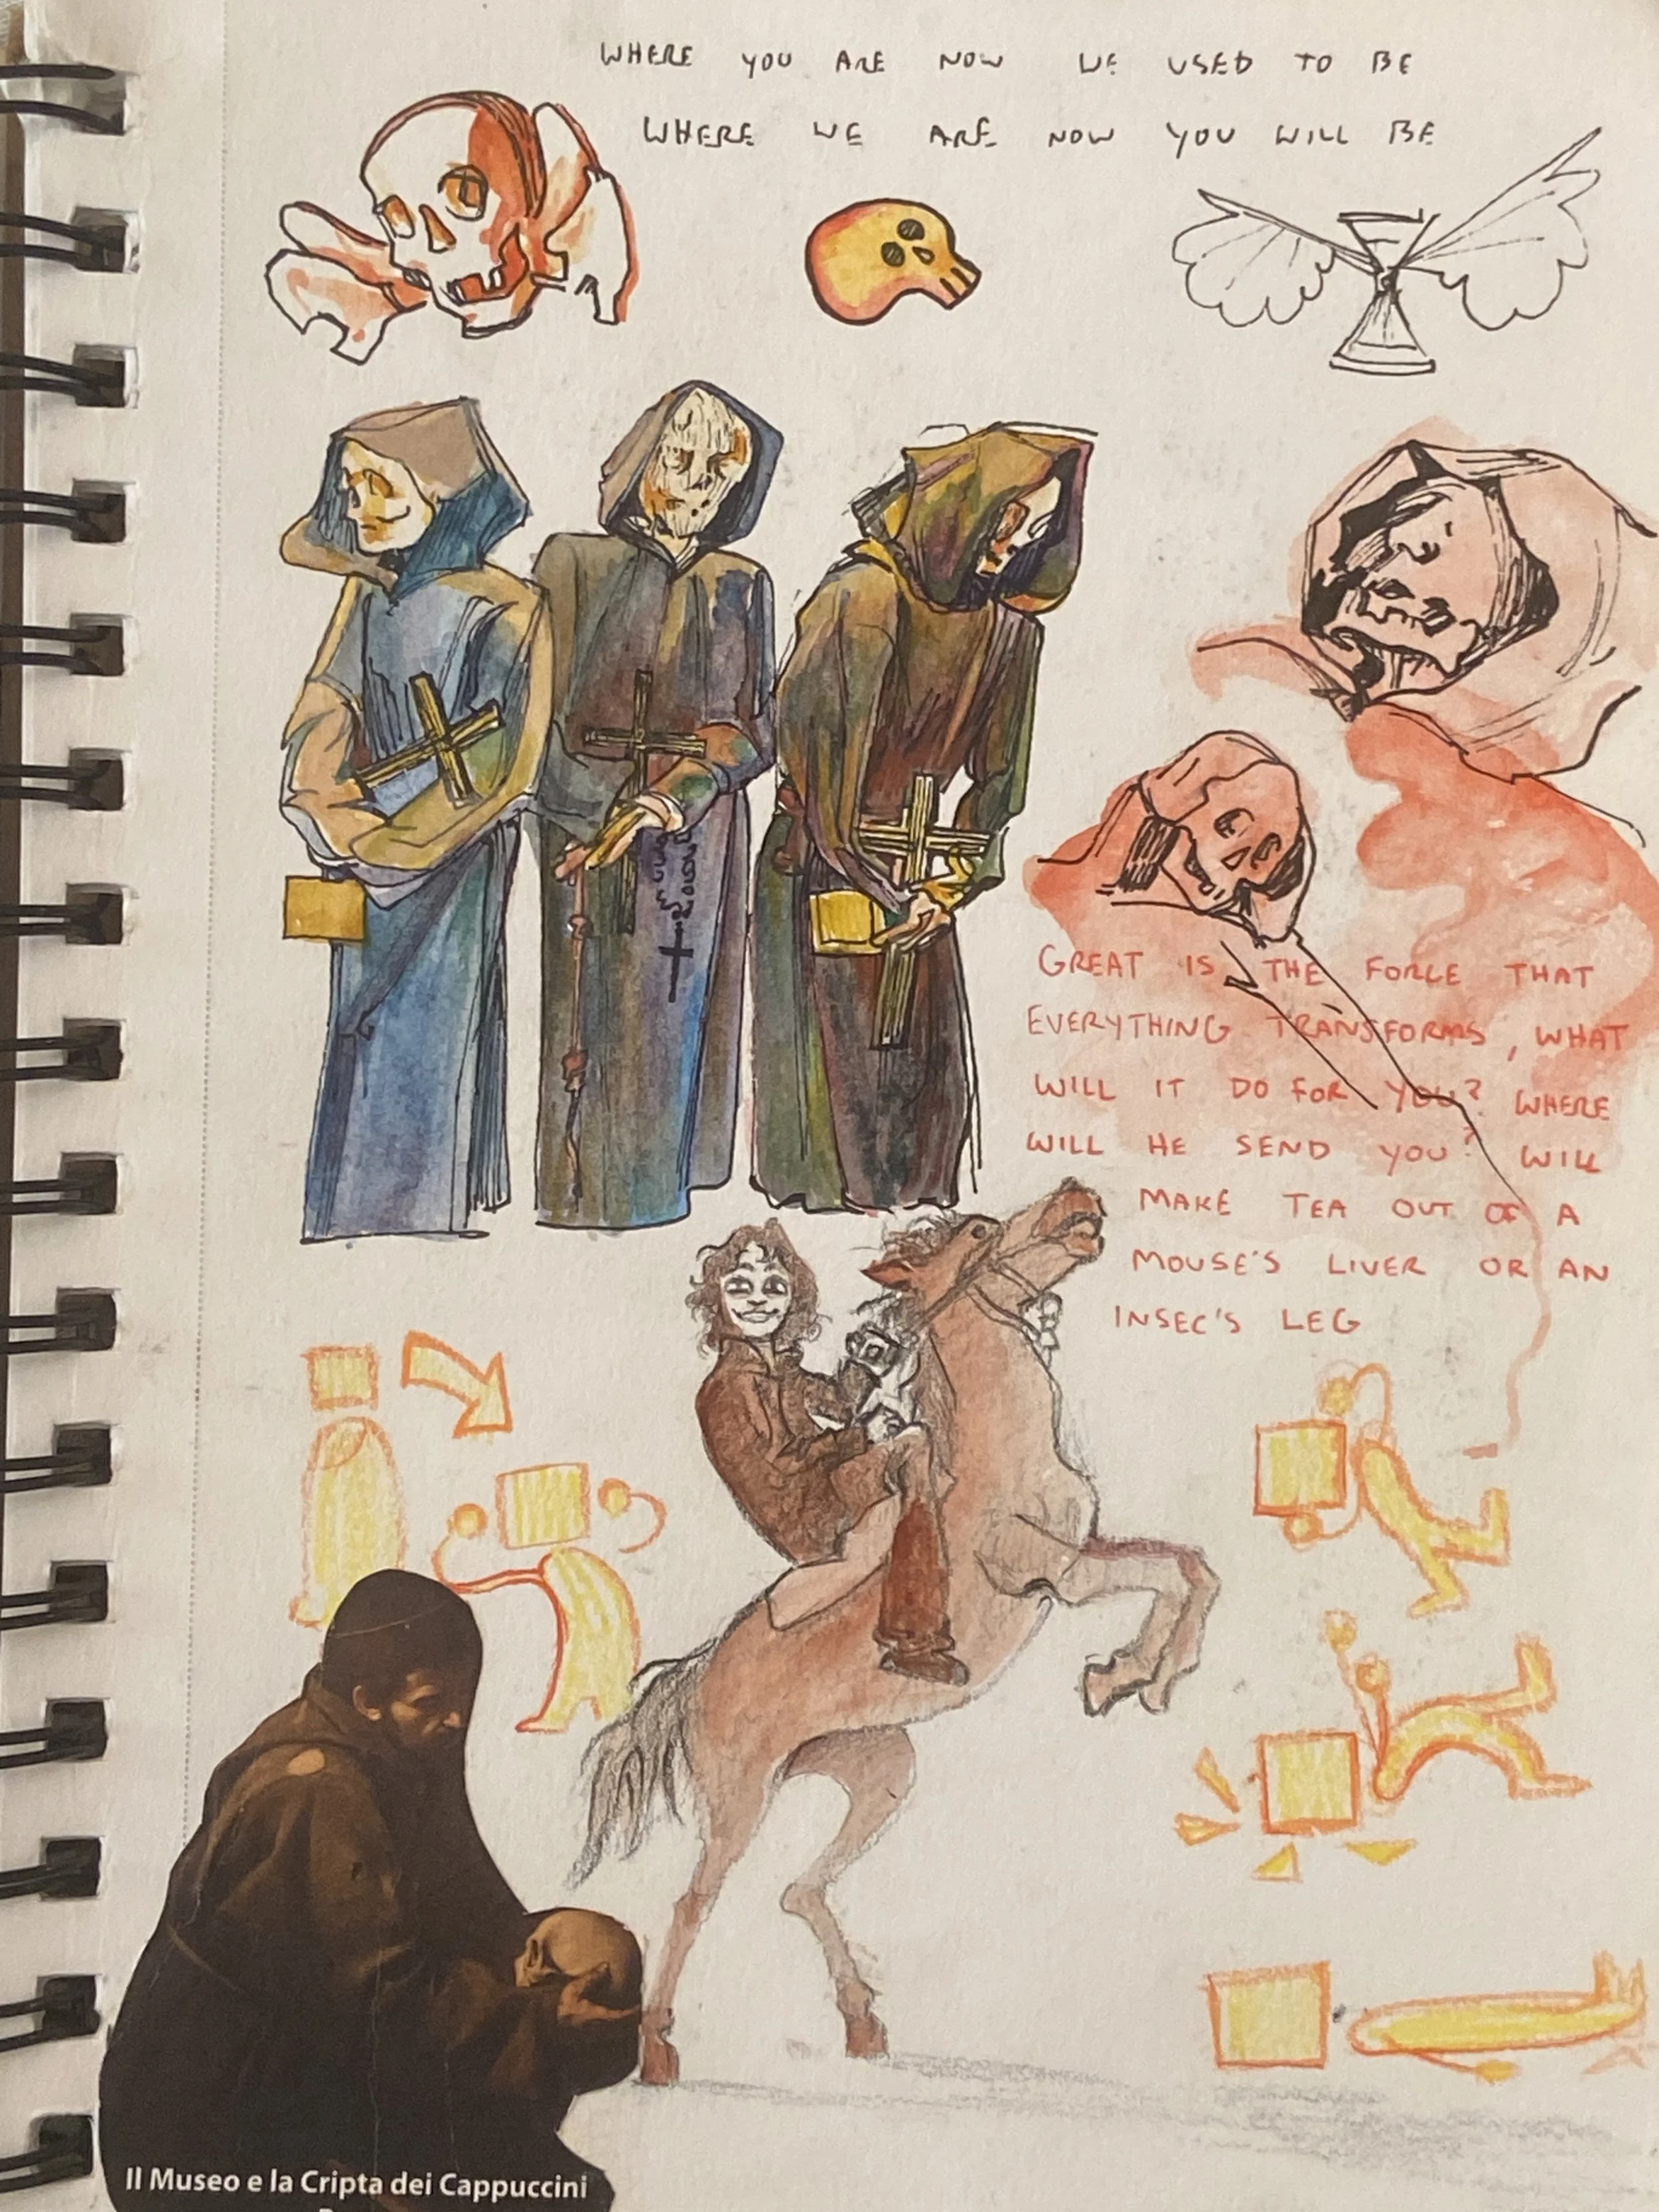 WHERE YOU ARE NOW WE USED TO BE
WHERE WE ARE NOW YOU WILL BE
GREAT IS THE FORCE THAT
EVERYTHING TRANSFORMS, WHAT
WILL IT DO FOR YOU? WHERE
WILL HE SEND YOU? WILL
MAKE TEA OUT OF A
MOUSE'S LIVER OR AN
INSEC'S LEG
Il Museo e la Cripta dei Cappuccini